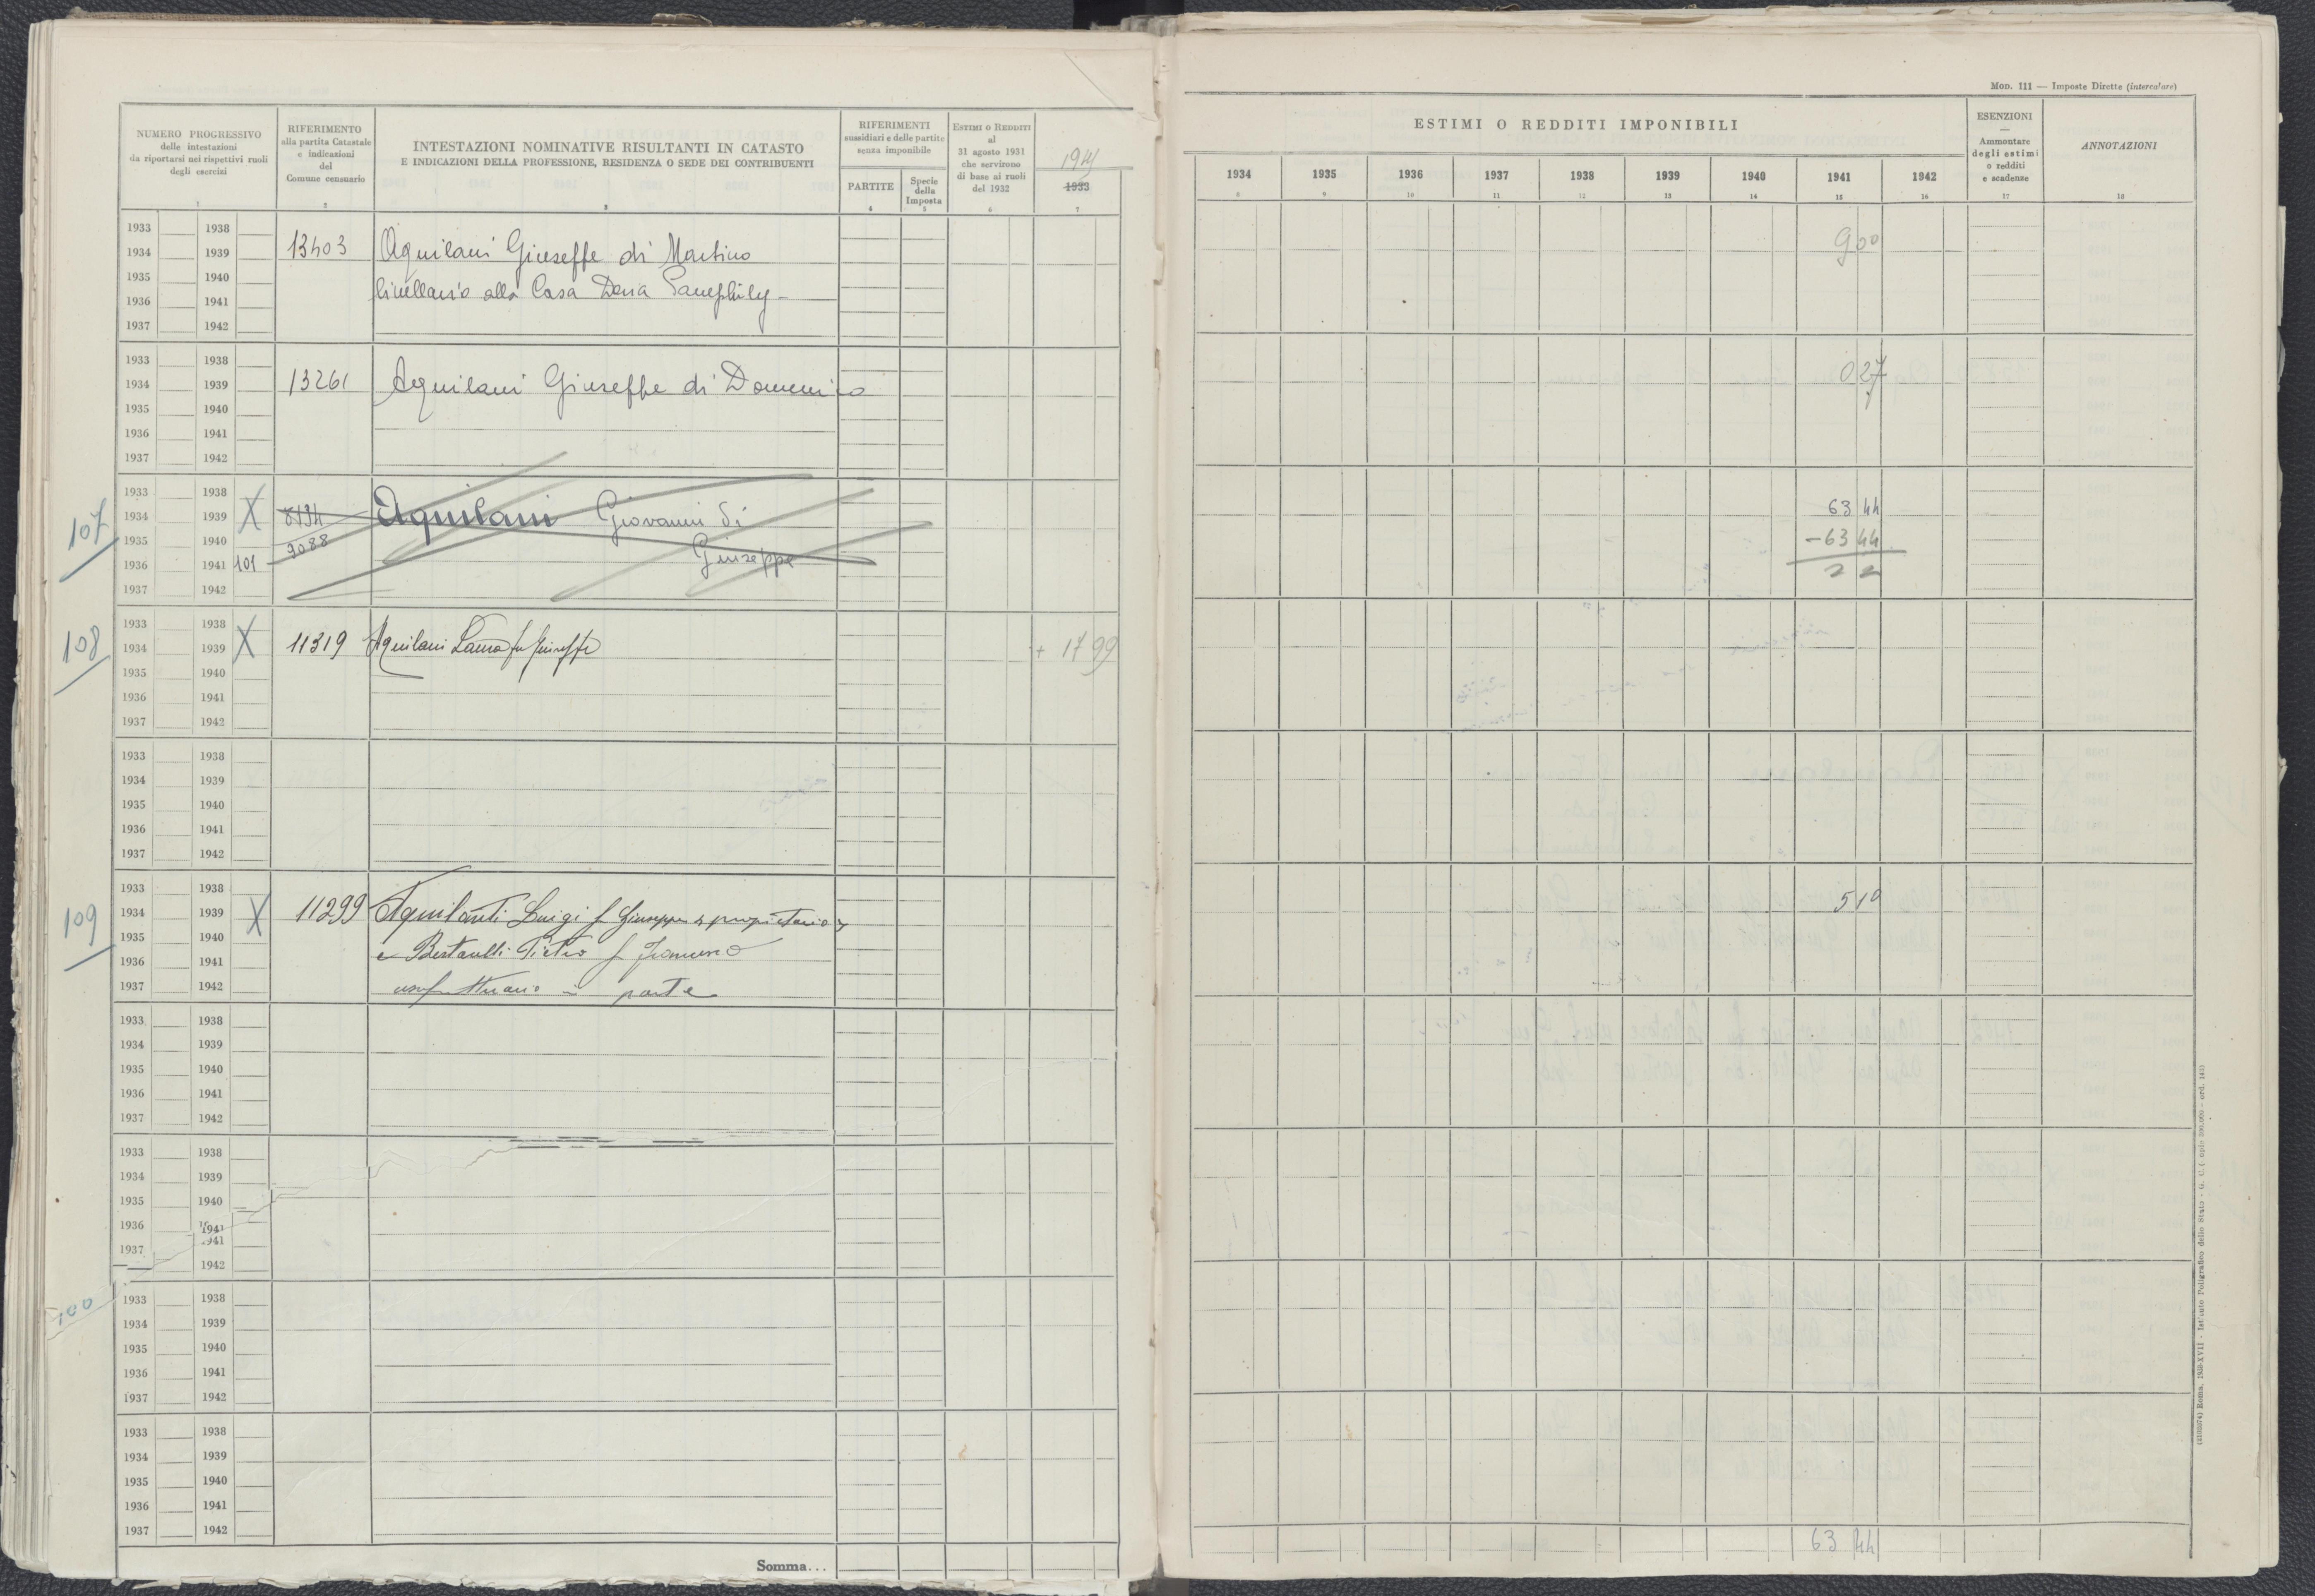 Mod. 111 — Imposte Dirette (intercalare)
NUMERO PROGRESSIVO
delle intestazioni
da riportarsi nei rispettivi ruoli
degli esercizi
1
RIFERIMENTO
alla partita Catastale
e indicazioni
del
Comune censuario
2
INTESTAZIONI NOMINATIVE RISULTANTI IN CATASTO
E INDICAZIONI DELLA PROFESSIONE, RESIDENZA O SEDE DEI CONTRIBUENTI
3
RIFERIMENTI
sussidiari e delle partite
senza imponibile
PARTITE
4
Specie
della
Imposta
5
Estimi o Redditi
al
31 agosto 1931
che servirono
di base ai ruoli
del 1932
6
1941
1933
7
ESTIMI O REDDITI IMPONIBILI
1934 1935 1936 1937 1938 1939 1940 1941 1942
8 9 10 11 12 13 14 15 16
ESENZIONI
—
Ammontare
degli estimi
o redditi
e scadenze
17
ANNOTAZIONI
18
1933 1938
1934 1939 13403 Aquilani Giuseffe di Martino 9 00
1935 1940
1936 1941 livellario alla Casa Doria Pamphily -
1937 1942
1933 1938
1934 1939 13261 Aquilani Giuseffe di Domenico 0 27
1935 1940
1936 1941
1937 1942
1933 1938
107 1934 1939 X 8134 Aquilani Giovanni di 63 44
1935 1940 9088 Giuseppe -63 44
1936 1941 101
1937 1942
1933 1938
108 1934 1939 X 11319 Aquilani Laura fu Giuseffe + 17 99
1935 1940
1936 1941
1937 1942
1933 1938
1934 1939
1935 1940
1936 1941
1937 1942
1933 1938
109 1934 1939 X 11299 Aquilanti Luigi f Giuseppe proprietario 5 10
1935 1940
1936 1941 e Pietro f
1937 1942 usufruttuario in parte
1933 1938
1934 1939
1935 1940
1936 1941
1937 1942
1933 1938
1934 1939
1935 1940
1936 1941
941
1937
1942
100
1933 1938
1934 1939
1935 1940
1936 1941
1937 1942
1933 1938
1934 1939
1935 1940
1936 1941
1937 1942
Somma... 63 44